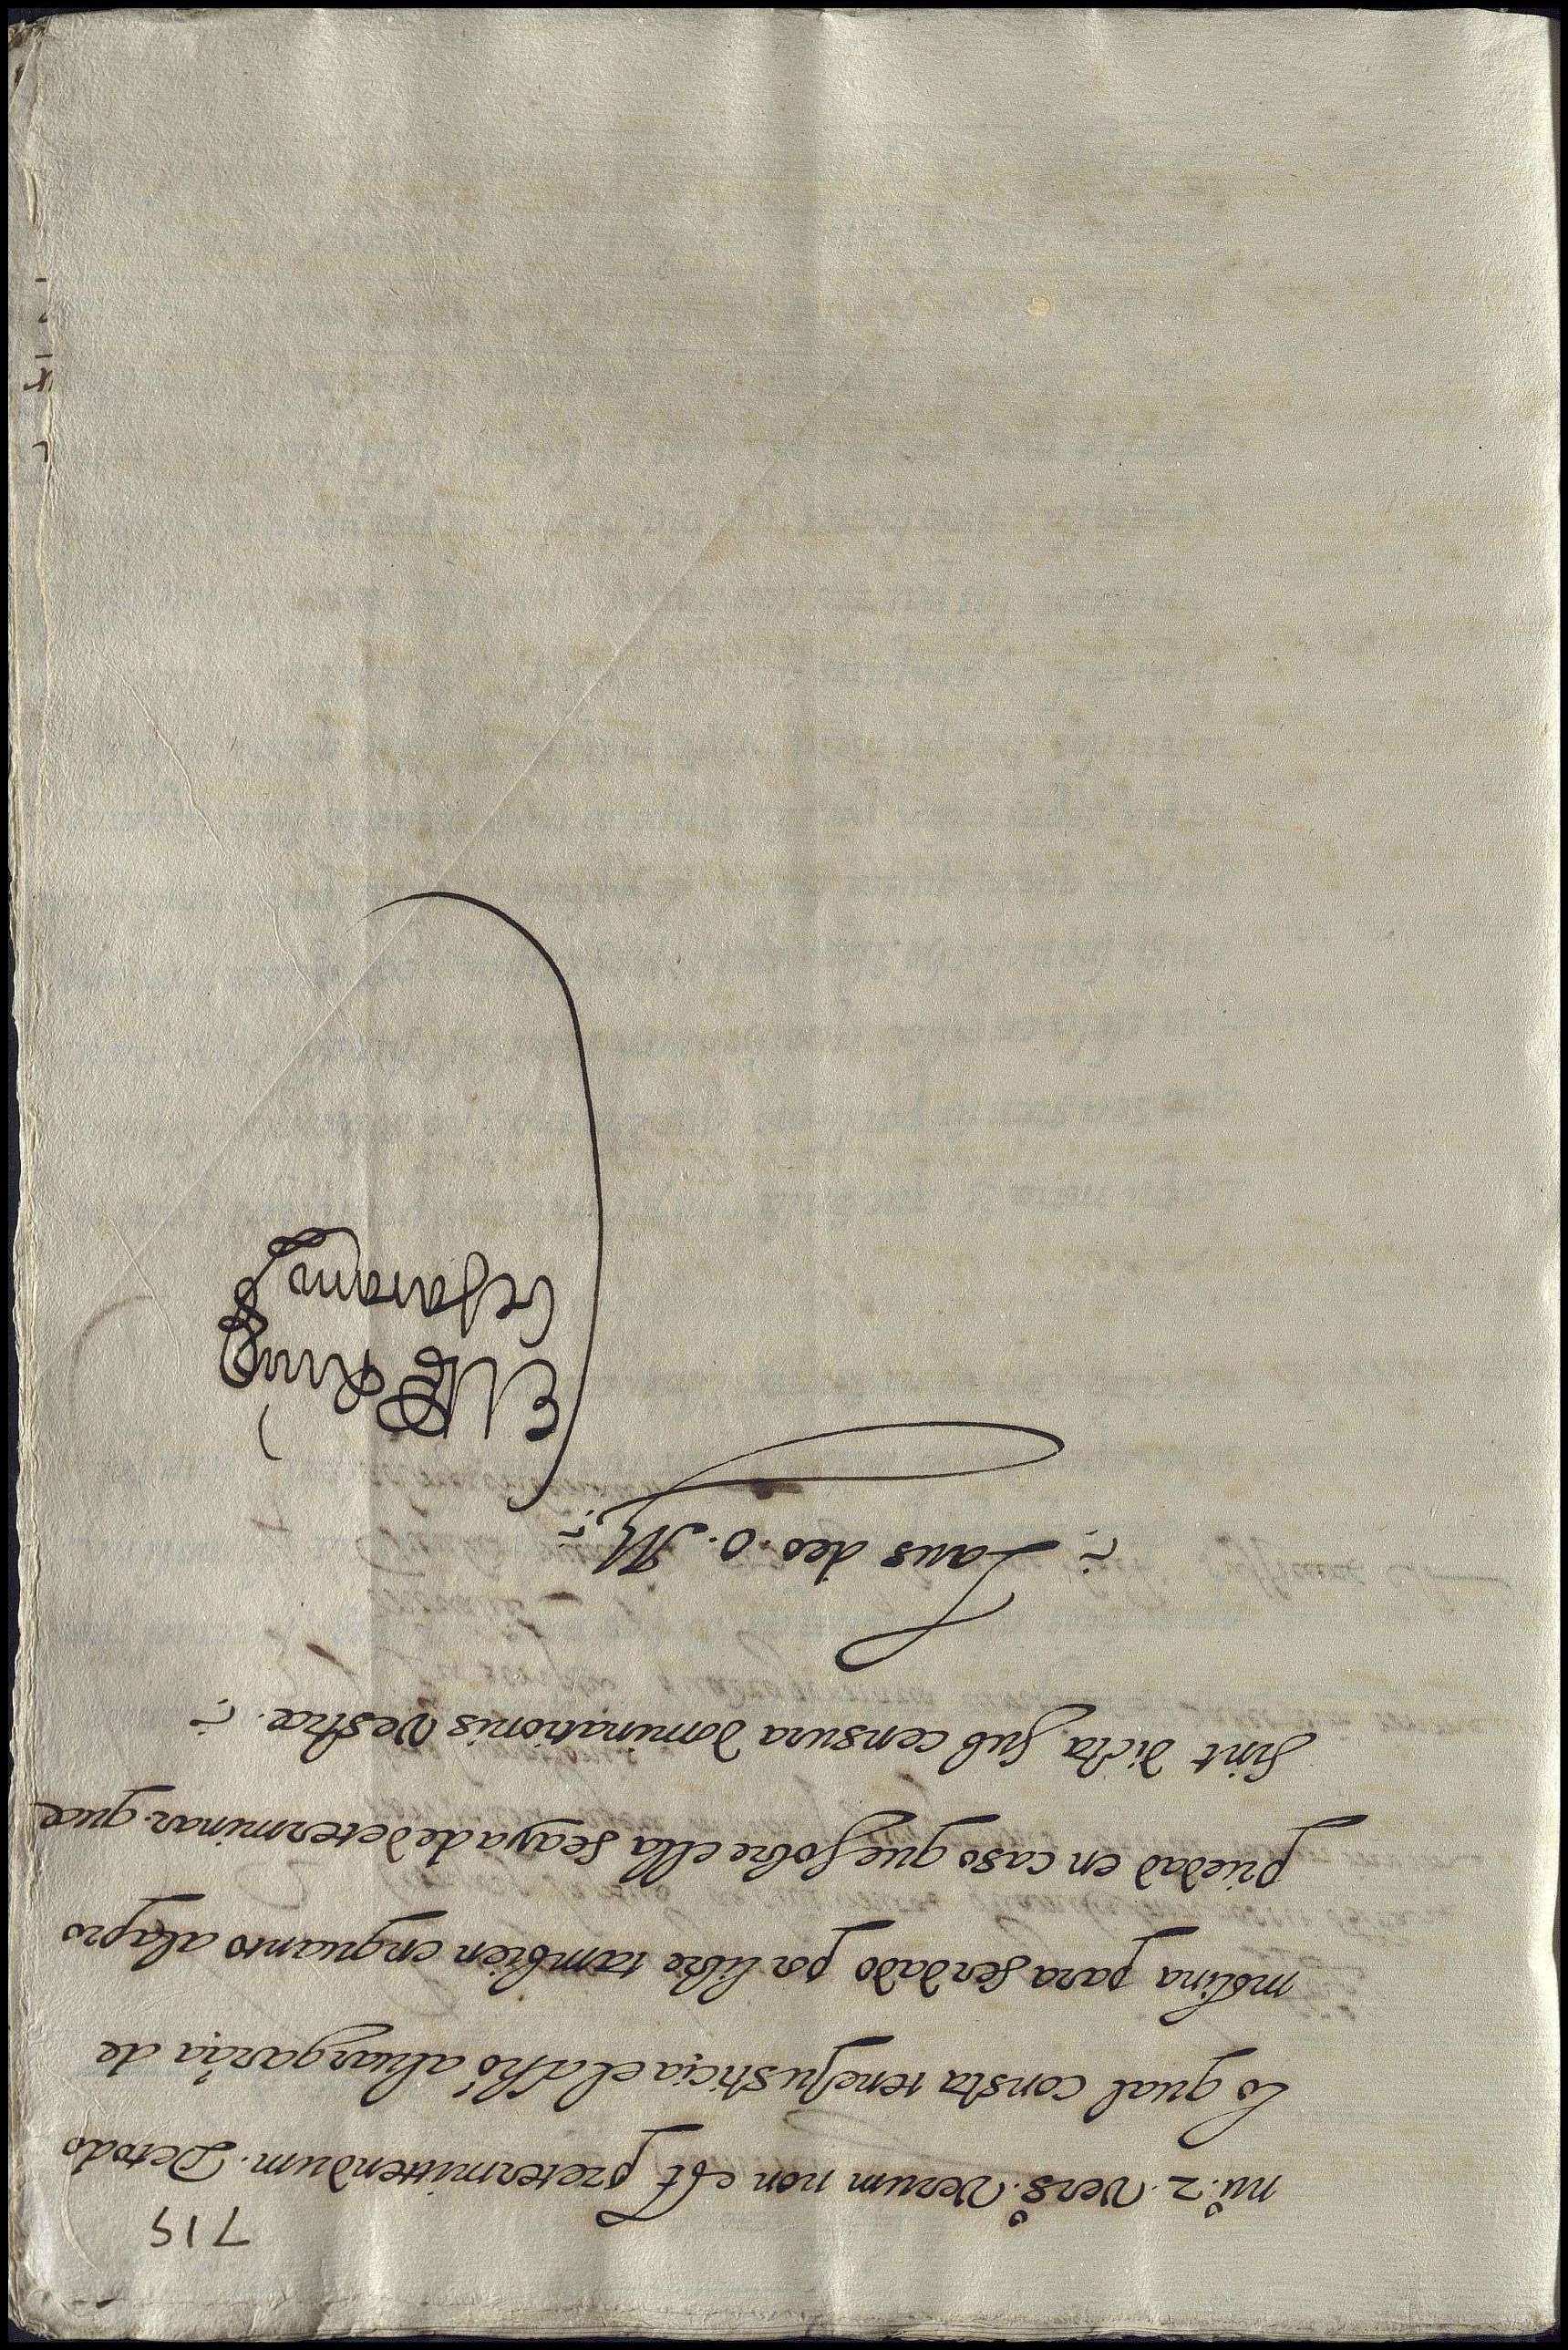 715
nu.º 2. vers.º Verum non est pretermittendum. De todo
lo qual consta tenejusticia el dho aluar garçia de
molina para ser dado por libre tambien en quanto ala pro
priedad en caso que sobre ella se aya de determinar. quæ
sint dicta sub censura dominationis Vestræ.
Laus deo. O. M.
El